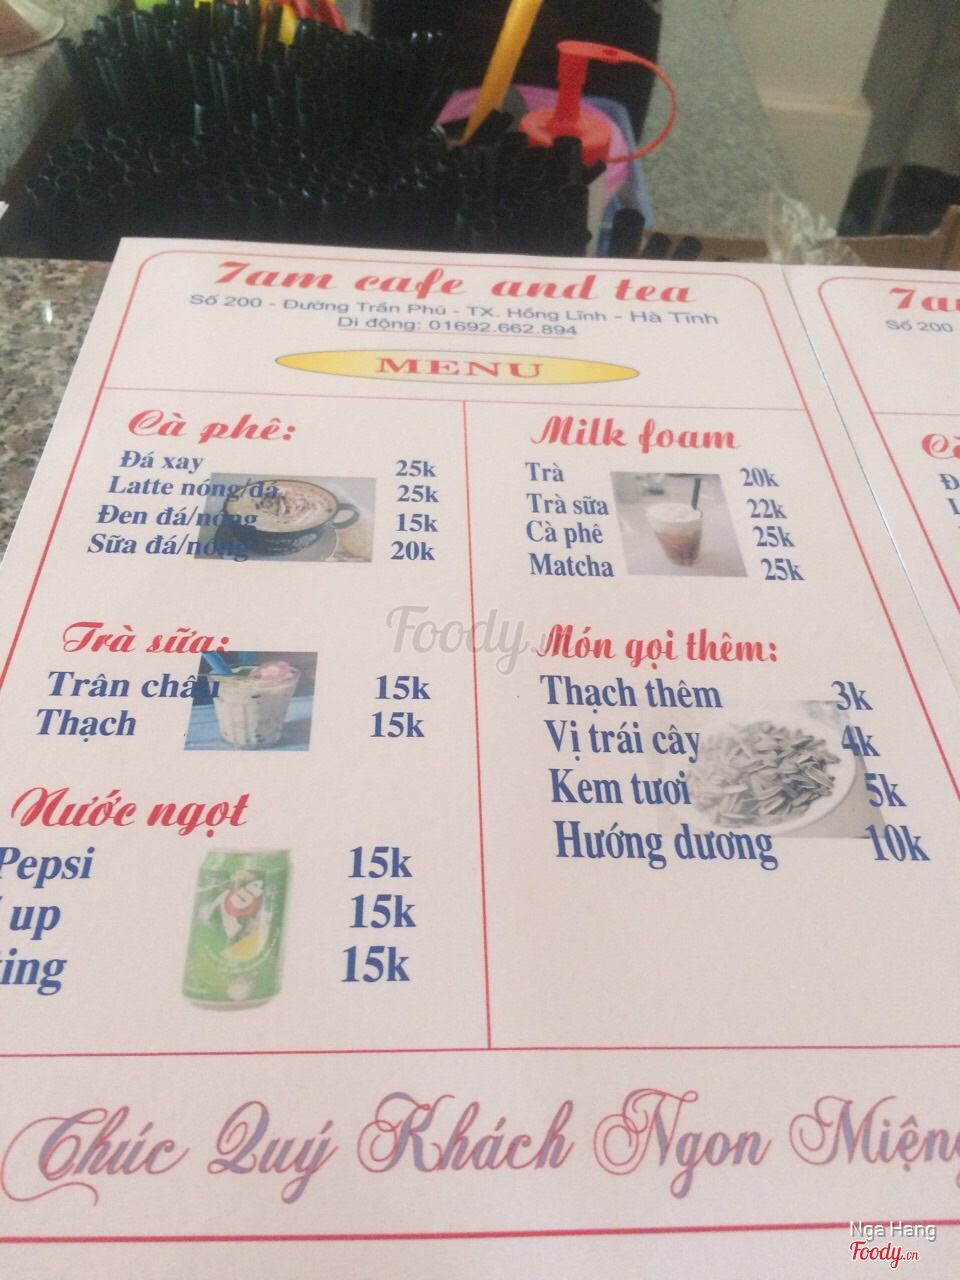 7am cafe and tea
Số 200 - Đường Trần Phú - TX. Hồng Lĩnh - Hà Tĩnh
Di động: 01692.662.894
MENU
Cà phê:
Đá xay 25k
Latte nóng/đá 25k
Đen đá/nóng 15k
Sữa đá/nóng 20k
Trà sữa:
Trân châu 15k
Thạch 15k
Nước ngọt
Pepsi 15k
up 15k
15k
Milk foam
Trà 20k
Trà sữa 22k
Cà phê 25k
Matcha 25k
Món gọi thêm:
Thạch thêm 3k
Vị trái cây 4k
Kem tươi 5k
Hướng dương 10k
Chúc Quý Khách Ngon Miệng
Số 200
Foody.vn
Nga Hang
Foody.vn